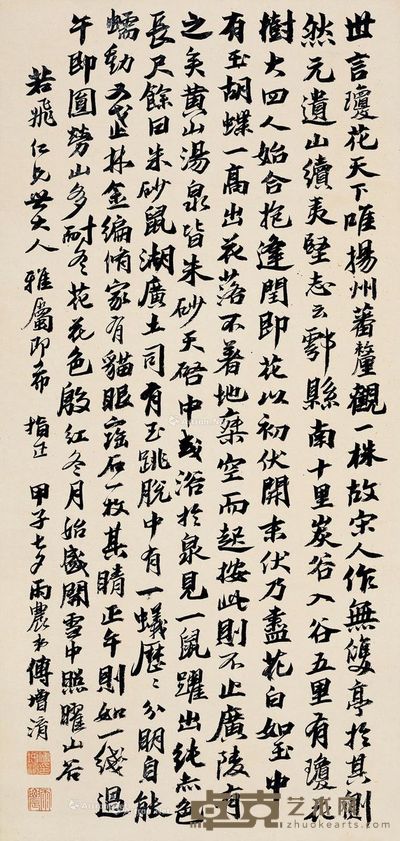 世言瓊花天下唯揚州蕃釐觀一株故宋人作無雙亭於其側
然元遺山續夷堅志云鄠縣南十里炭谷入谷五里有瓊花
樹大四人始合抱逢閏即花以初伏開末伏乃盡花白如玉中
有玉胡蝶一高出花落不著地乘空而起按此則不止廣陵有
之矣黃山湯泉皆朱砂天啓中或浴於泉見一鼠躍出純赤色
長尺餘曰朱砂鼠湖廣土司有玉跳脫中有一蟻歷歷分明自能
蠕動乃止林金編脩家有貓眼寶石一枚其睛正午則如一綫過
午即圓勞山多耐冬花花色殷紅冬月始盛開雪中照曜山谷
若飛仁兄世大人雅屬即希指正 甲子七夕雨農弟傅增淯
卓克艺术网
www.zhuokearts.com